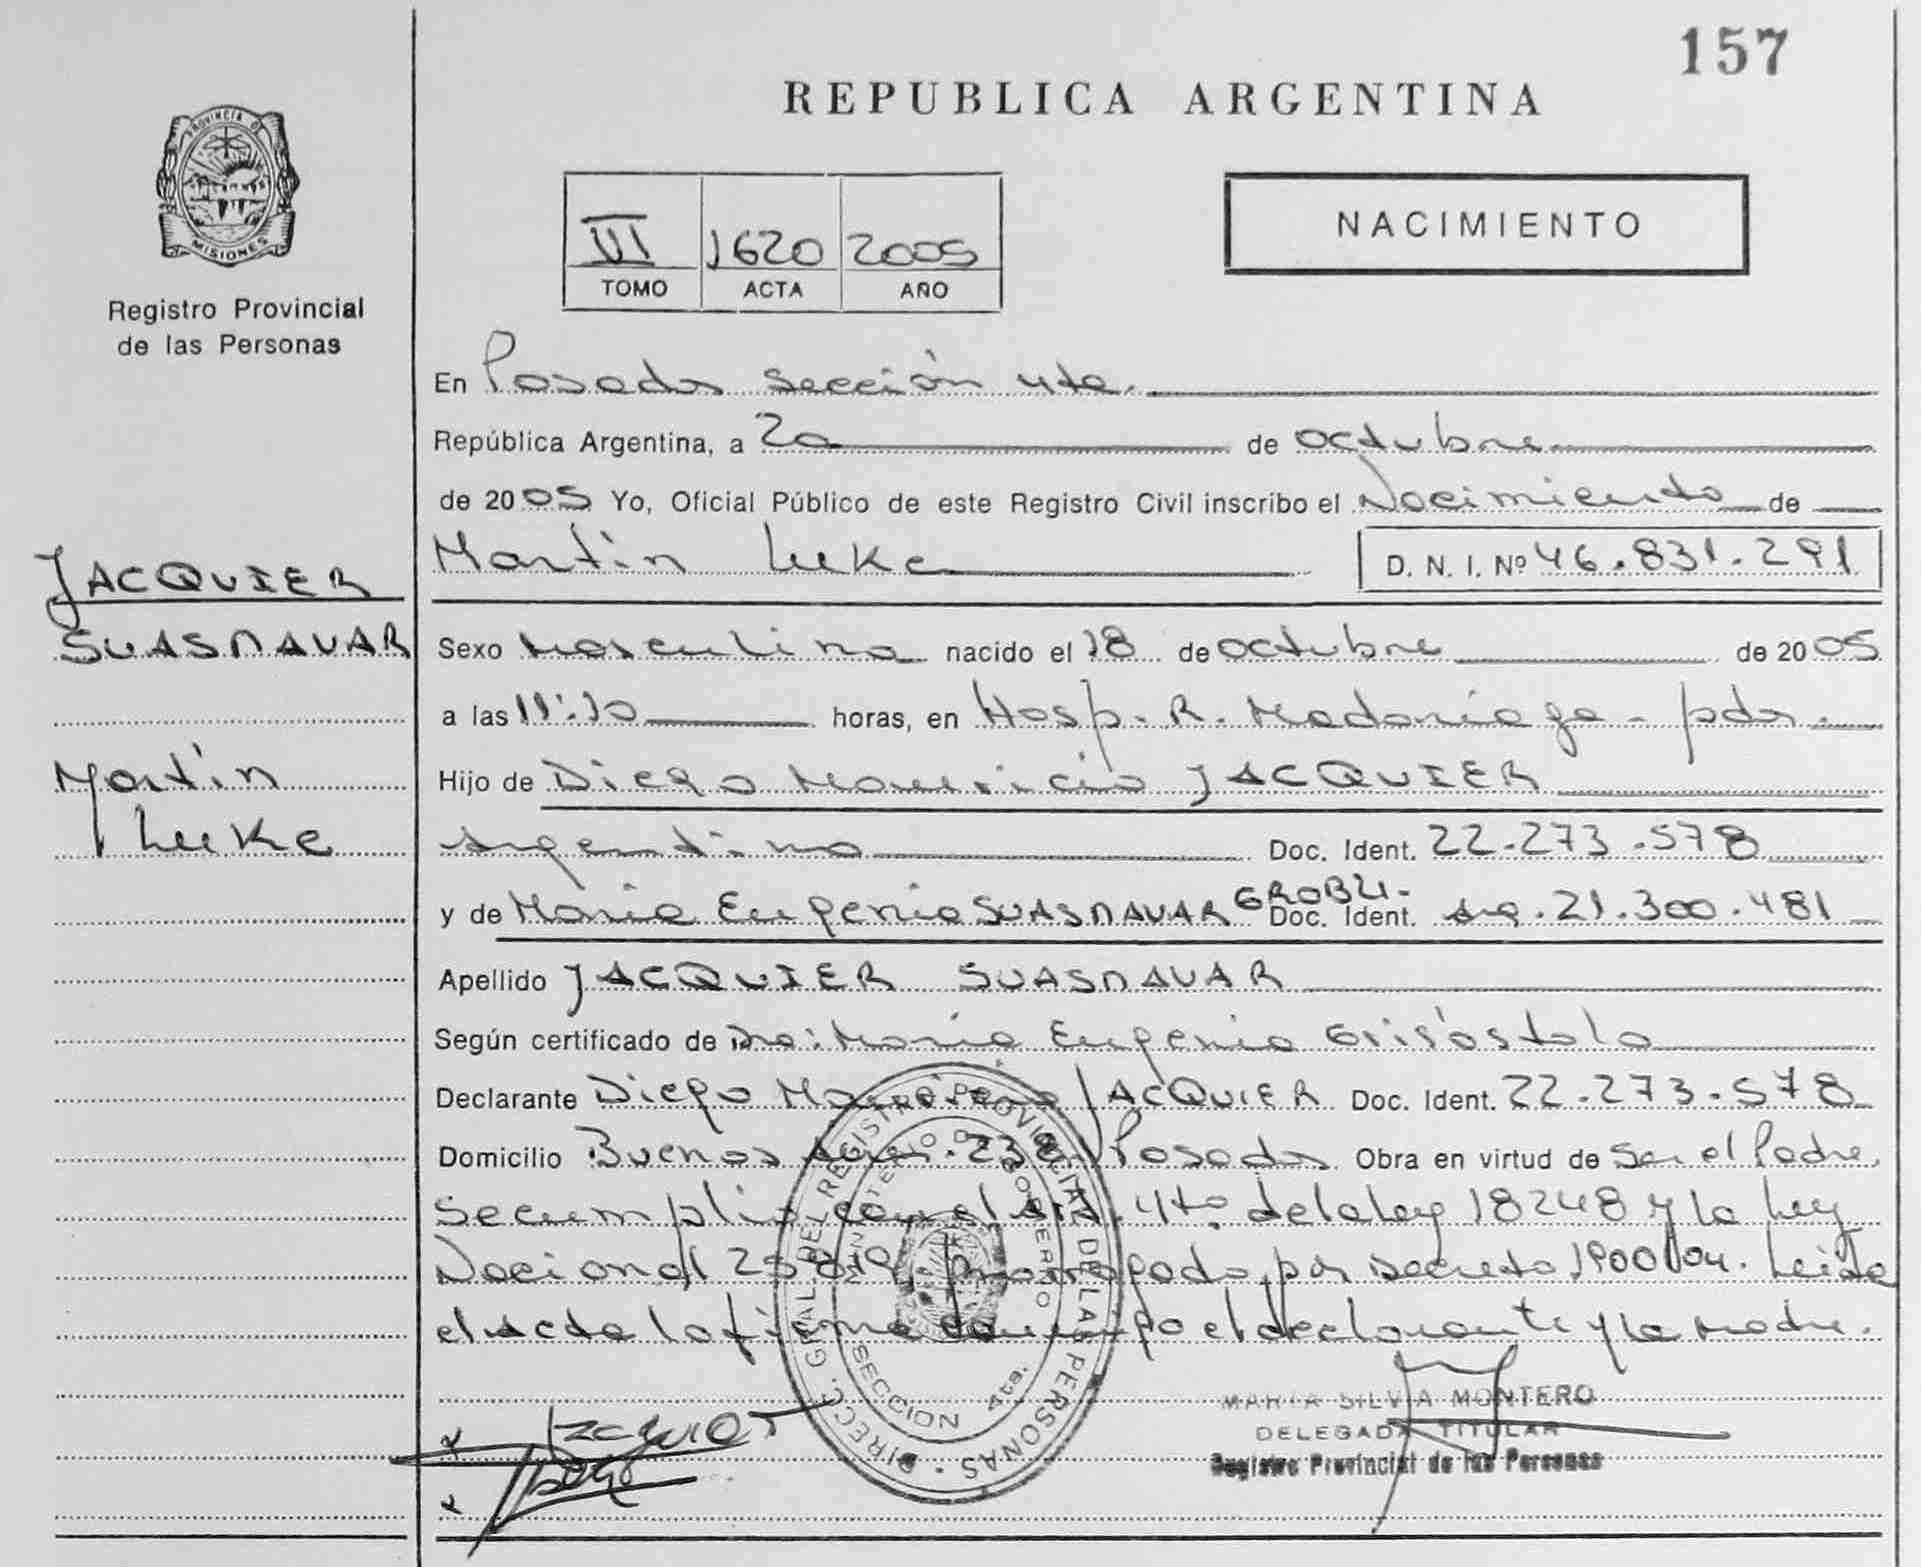 157
REPUBLICA ARGENTINA
PROVINCIA DE
MISIONES
Registro Provincial
de las Personas
VI 1620 2005
TOMO ACTA AÑO
NACIMIENTO
En Posadas sección 4ta.
República Argentina, a 20 de octubre
de 2005 Yo, Oficial Público de este Registro Civil inscribo el Nacimiento de
Martín Luke D. N. I. Nº 46.831.291
JACQUIER
SUASNAVAR
Martín
Luke
Sexo Masculino nacido el 18 de octubre de 2005
a las 11:10 horas, en Hosp. R. Madariaga - pdas.
Hijo de Diego Mauricio JACQUIER
Argentino Doc. Ident. 22.273.578
y de María Eugenia SUASNAVAR GROBLI- Doc. Ident. Arg. 21.300.481
Apellido JACQUIER SUASNAVAR
Según certificado de Dra: María Eugenia Grisóstolo
Declarante Diego Mauricio JACQUIER Doc. Ident. 22.273.578
Domicilio Buenos Aires. 238 Posadas Obra en virtud de Ser el Padre.
Se cumplió con el Art. 4to. de la ley 18248 y la Ley
Nacional 25.819, prorrogada por decreto 1900/04. Leída
el Acta la firma conmigo el declarante y la madre.
DIRECC. GRAL. DEL REGISTRO PROVINCIAL DE LAS PERSONAS
MINISTERIO DE GOBIERNO
SECCION 4ta.
MARIA SILVIA MONTERO
DELEGADA TITULAR
Registro Provincial de las Personas
Jacquier